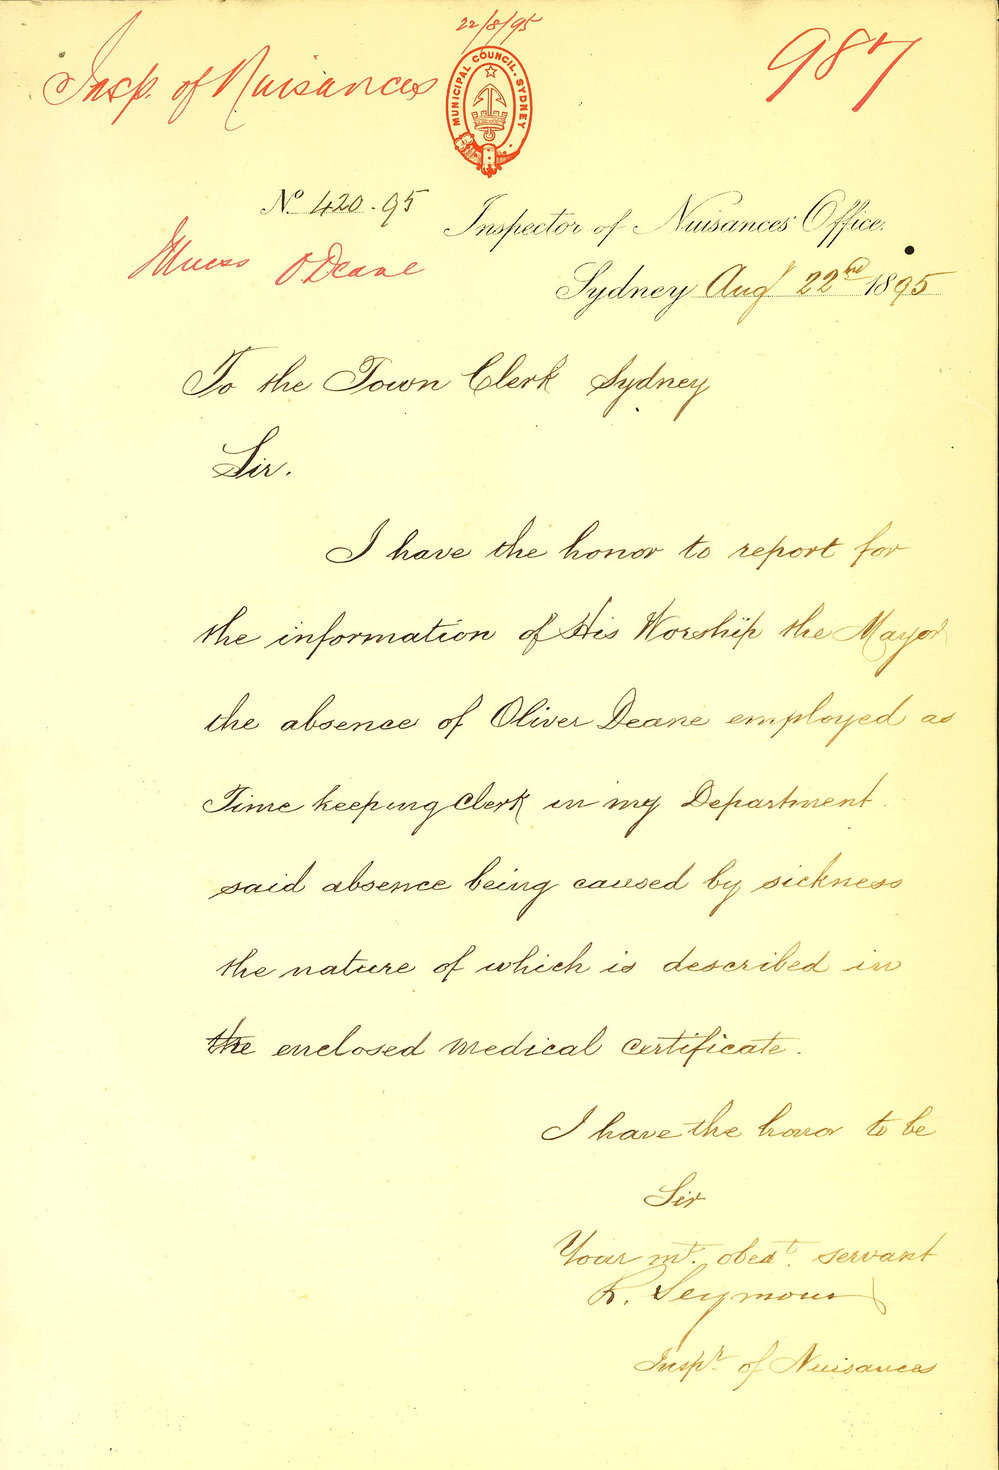 22/8/95
Insp. of Nuisances
987
MUNICIPAL COUNCIL. SYDNEY
No 420.95
Inspector of Nuisances' Office.
Illness O Deane
Sydney Augt 22nd 1895
To the Town Clerk Sydney
Sir.
I have the honor to report for
the information of His Worship the Mayor
the absence of Oliver Deane employed as
Time keeping Clerk in my Department
said absence being caused by sickness
the nature of which is described in
the enclosed medical certificate.
I have the honor to be
Sir
Your mt. obedt. servant
R. Seymour
Inspr. of Nuisances